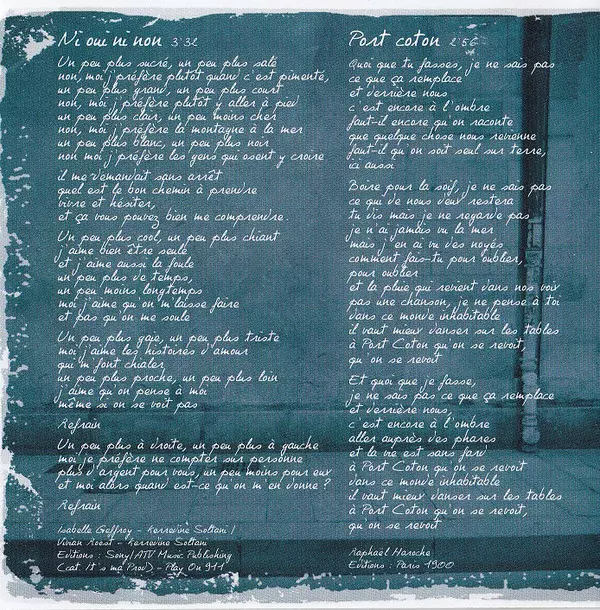 Ni oui ni non 3'32
Un peu plus sucré, un peu plus salé
non, moi j'préfère plutôt quand c'est pimenté,
un peu plus grand, un peu plus court
non, moi j'préfère plutôt y aller à pied
un peu plus clair, un peu moins cher
non, moi j'préfère la montagne à la mer
un peu plus blanc, un peu plus noir
non moi j'préfère les gens qui osent y croire
il me demandait sans arrêt
quel est le bon chemin à prendre
vivre et hésiter,
et ça vous pouvez bien me comprendre.
Un peu plus cool, un peu plus chiant
j'aime bien être seule
et j'aime aussi la foule
un peu plus de temps,
un peu moins longtemps
moi j'aime qu'on m'laisse faire
et pas qu'on me soule
Un peu plus gaie, un peu plus triste
moi j'aime les histoires d'amour
qui m'font chialer
un peu plus proche, un peu plus loin
j'aime qu'on pense à moi
même si on se voit pas
Refrain
Un peu plus à droite, un peu plus à gauche
moi je préfère ne compter sur personne
plus d'argent pour vous, un peu moins pour eux
et moi alors quand est-ce qu'on m'en donne ?
Refrain
Isabelle Geffroy - Kerredine Soltani /
Vivian Roost - Kerredine Soltani
Editions : Sony/ATV Music Publishing
(cat. It's ma Prod) - Play On 911
Port coton 2'56
Quoi que tu fasses, je ne sais pas
ce que ça remplace
et derrière nous
c'est encore à l'ombre
faut-il encore qu'on raconte
que quelque chose nous revienne
faut-il qu'on soit seul sur terre,
ici aussi
Boire pour la soif, je ne sais pas
ce qui de nous deux restera
tu dis mais je ne regarde pas
je n'ai jamais vu la mer
mais j'en ai vu des noyés
comment fais-tu pour oublier,
pour oublier
et la pluie qui revient dans nos voix
pas une chanson, je ne pense à toi
dans ce monde inhabitable
il vaut mieux danser sur les tables
à Port Coton qu'on se revoit,
qu'on se revoit
Et quoi que je fasse,
je ne sais pas ce que ça remplace
et derrière nous,
c'est encore à l'ombre
aller auprès des phares
et la vie est sans fard
à Port Coton qu'on se revoit
dans ce monde inhabitable
il vaut mieux danser sur les tables
à Port Coton qu'on se revoit,
qu'on se revoit
Raphaël Haroche
Editions : Paris 1900